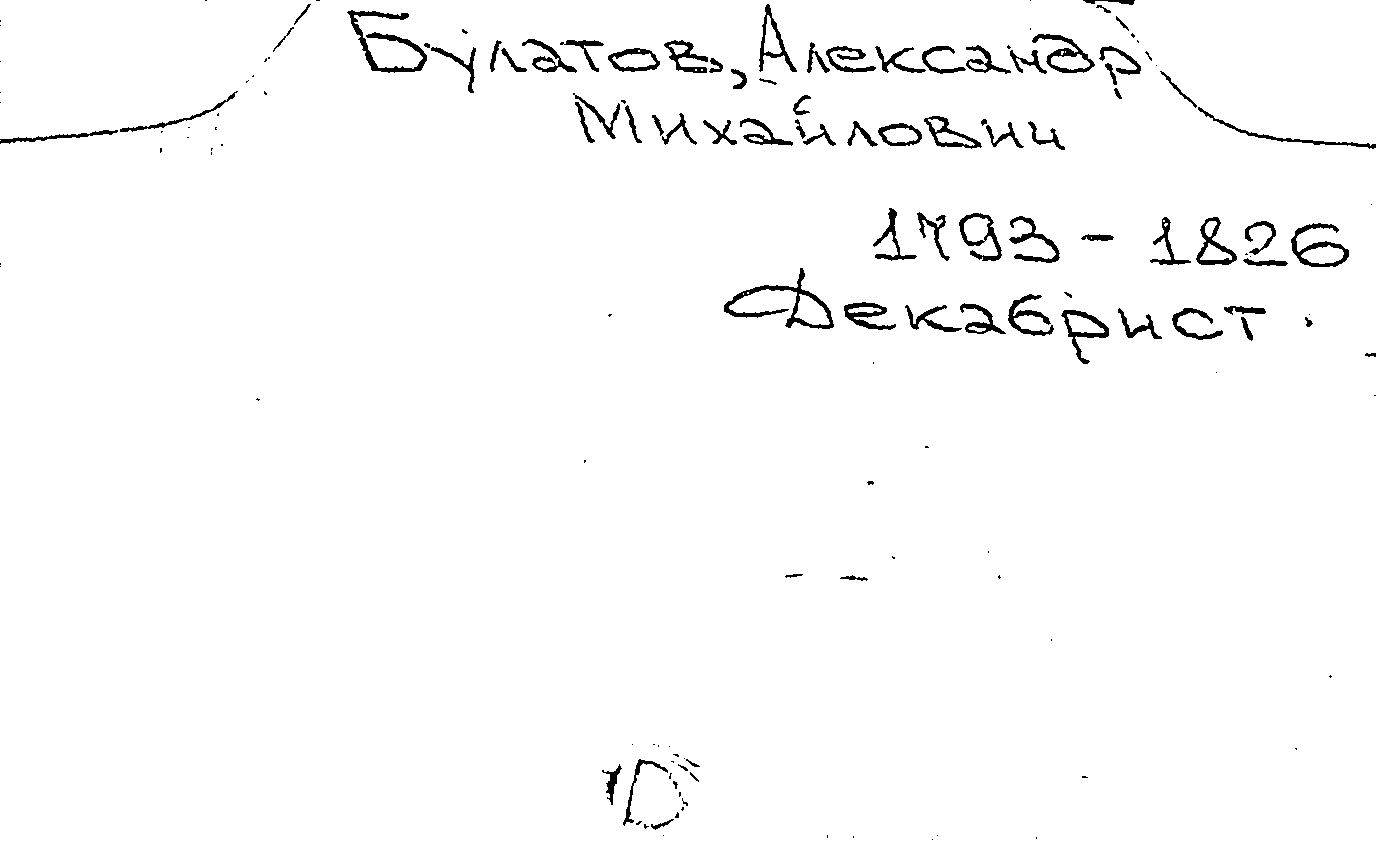 Булатов, Александр
Михайлович
1793 - 1826
Декабрист.